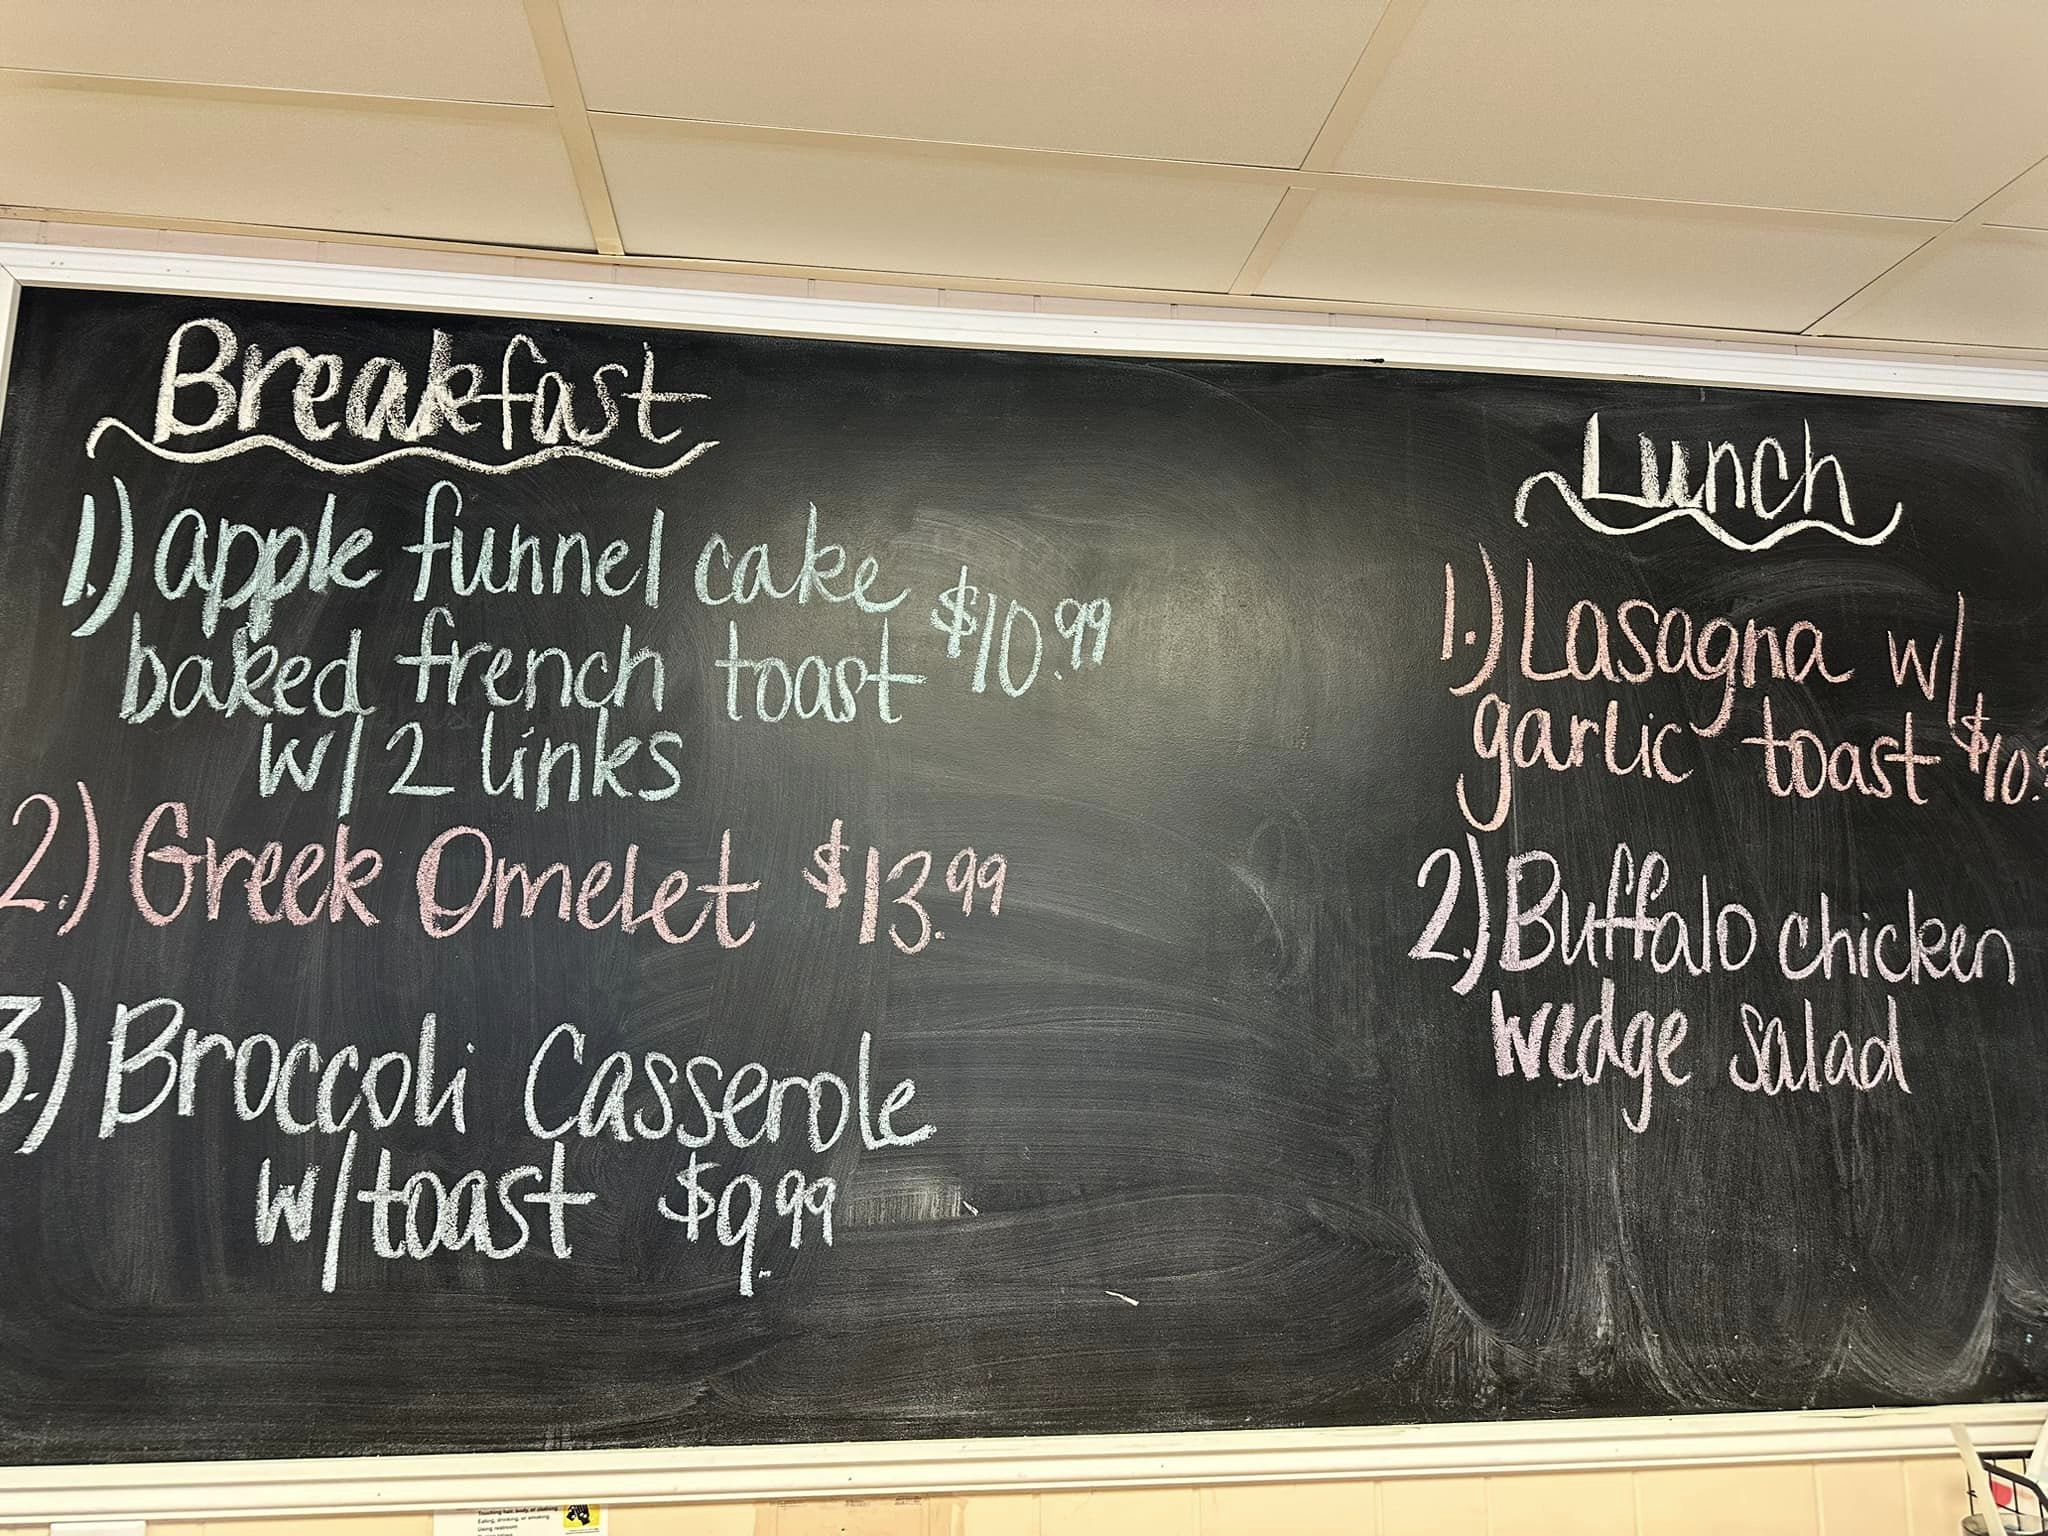 Breakfast
1.) apple funnel cake
baked french toast $10.99
w/ 2 links
2.) Greek Omelet $13.99
3.) Broccoli Casserole
w/toast $9.99
Lunch
1.) Lasagna w/
garlic toast $10.
2.) Buffalo chicken
wedge salad
Touching hair, body, or clothing
Eating, drinking, or smoking
Using restroom